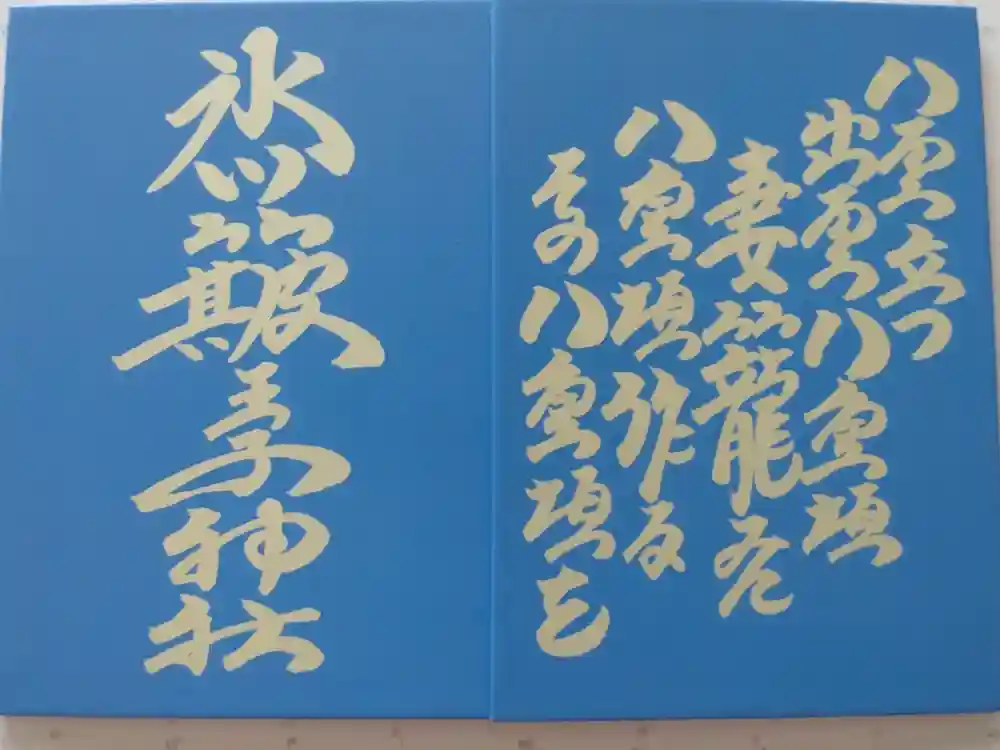 八雲立つ
出雲八重垣
妻籠
八重垣作る
その八重垣を
氷川簸王子神社